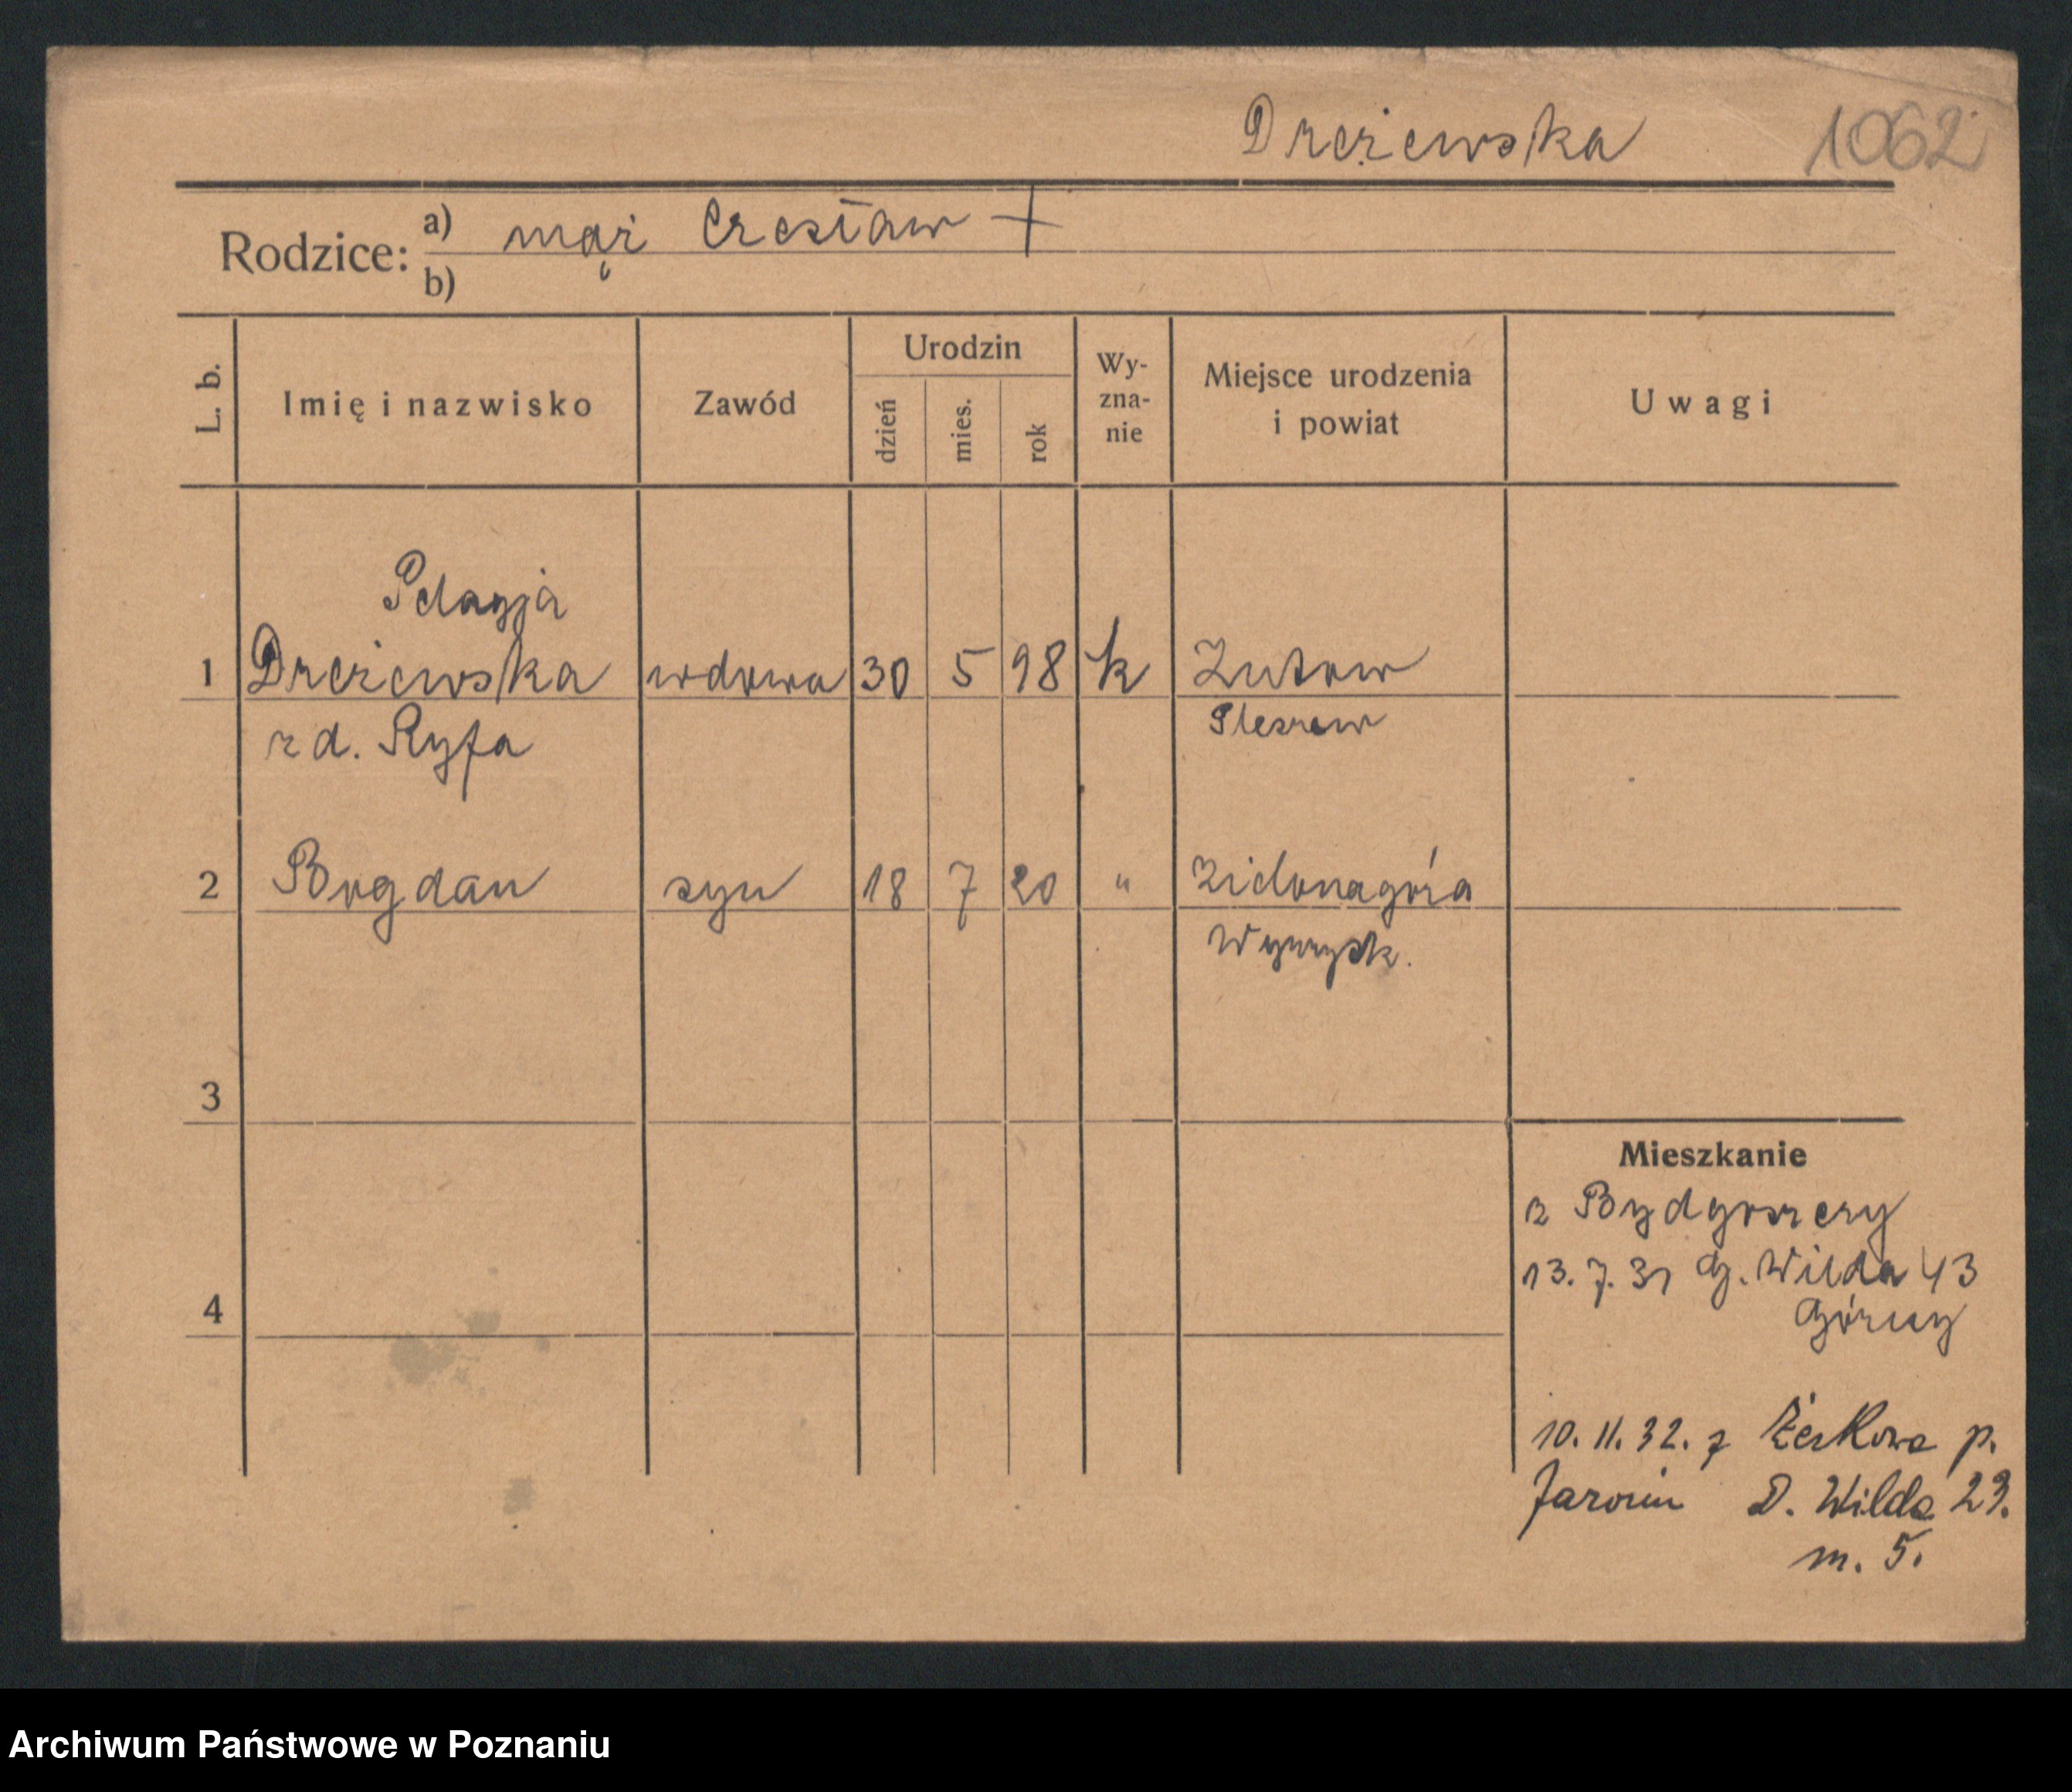 Drezewska 1062
Rodzice: a) mąż Czesław +
b)
L. b. Imię i nazwisko Zawód Urodzin dzień mies. rok Wy-zna-nie Miejsce urodzenia i powiat Uwagi
Pelagja
1 Drezewska wdowa 30 5 98 k
rd. Ryfa Pleszew
2 Bogdan syn 18 7 20 " Zielonagóra
Wyrzysk.
3
4
Mieszkanie
z Bydgoszczy
13.7.31 G. Wilda 43
Górny
10.11.32. z Żerkowa p.
Jarocin D. Wilda 23.
m. 5.
Archiwum Państwowe w Poznaniu